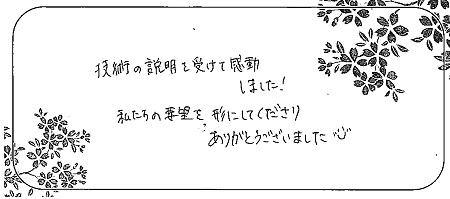 技術の説明を受けて感動
しました!
私たちの要望を形にしてくださり
ありがとうございました